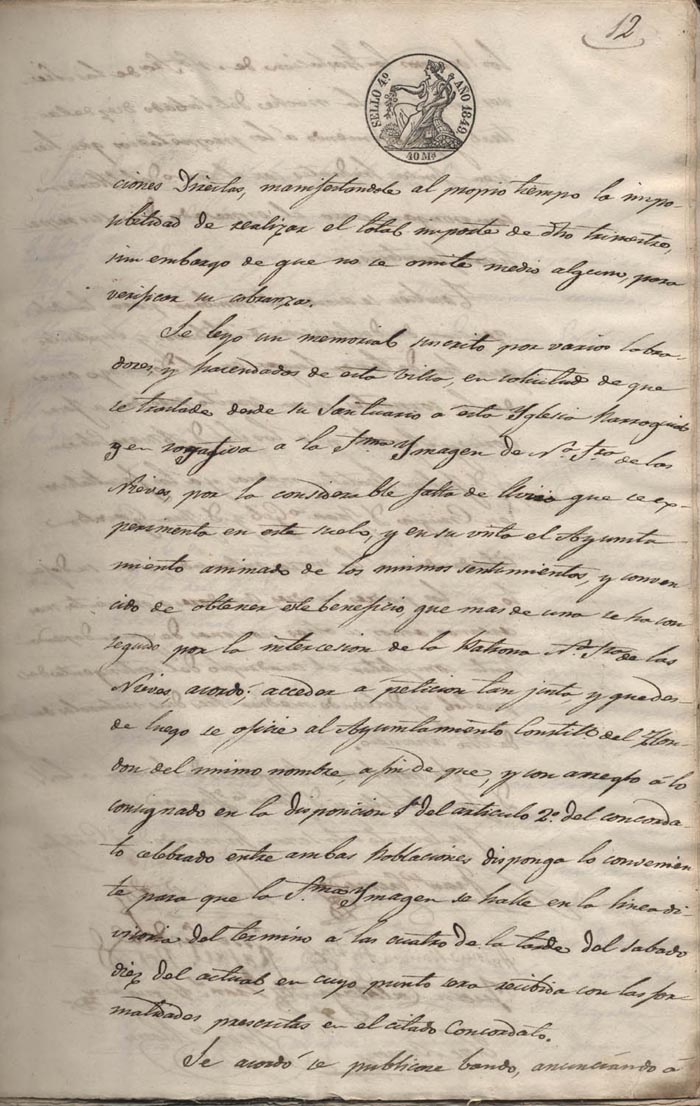 12
SELLO 4º AÑO 1849.
40 Ms
ciones Directas, manifestandole al propio tiempo la impo-
sibilidad de realizar el total importe de dho trimestre,
sin embargo de que no se omite medio alguno, para
verificar su cobranza.
Se leyo un memorial suscrito por varios labra-
dores, y hacendados de esta Villa, en solicitud de que
se traslade desde su Santuario a esta Yglesia Parroquial
y en rogativa á la Sma Ymagen de Na Sra de las
Nieves, por la considerable falta de lluvia que se ex-
perimenta en este suelo, y en su vista el Ayunta
miento animado de los mismos sentimientos, y conven
cido de obtener este beneficio que mas de una se ha con
seguido por la intercesion de la Patrona Na Sra de las
Nieves, acordó; acceder á peticion tan justa, y que des-
de luego se oficie al Ayuntamiento Constitl del Hon
don del mismo nombre, a fin de que, y con arreglo á lo
consignado en la disposicion 1ª del articulo 2º del concorda-
to celebrado entre ambas Poblaciones disponga lo convenien
te para que la Sma Ymagen se halle en la linea di
visoria del termino á las cuatro de la tarde del sabado
diez del actual, en cuyo punto sera recibida con las for
malidades prescritas en el citado Concordato.
Se acordó se publicase bando, anunciando á